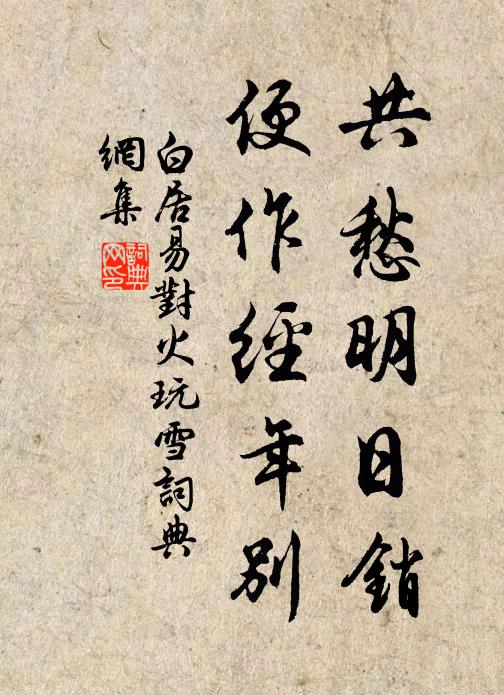 共愁明日銷
便作經年別
白居易對火玩雪詞典
網集
詞典
网印